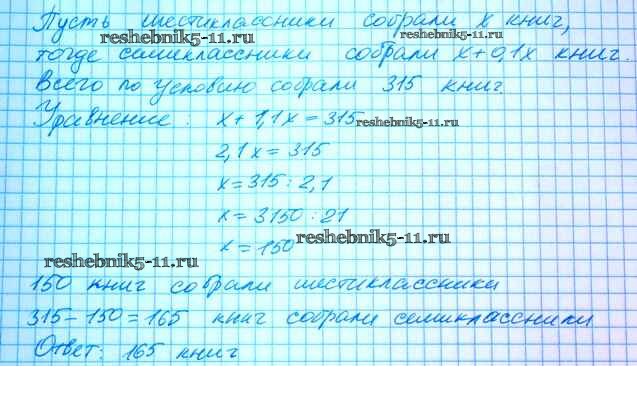 Пусть шестиклассники собрали x книг,
reshebnik5-11.ru reshebnik5-11.ru
тогда семиклассники собрали x+0,1x книг.
Всего по условию собрали 315 книг
Уравнение: x+1,1x=315
reshebnik5-11.ru
2,1x=315
x=315:2,1
x=3150:21
x=150
reshebnik5-11.ru
reshebnik5-11.ru
150 книг собрали шестиклассники
315-150=165 книг собрали семиклассники
Ответ: 165 книг